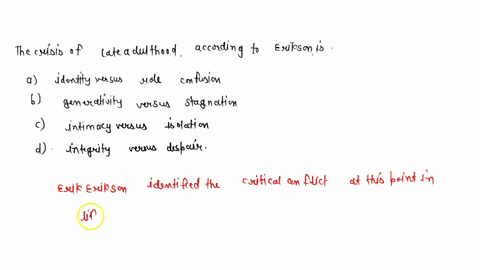 The crisis of late adulthood, according to Erikson, is.
a) identity versus role confusion
b) generativity versus stagnation
c) intimacy versus isolation
d). integrity versus despair.
Erik Erikson identified the critical conflict at this point in
lif